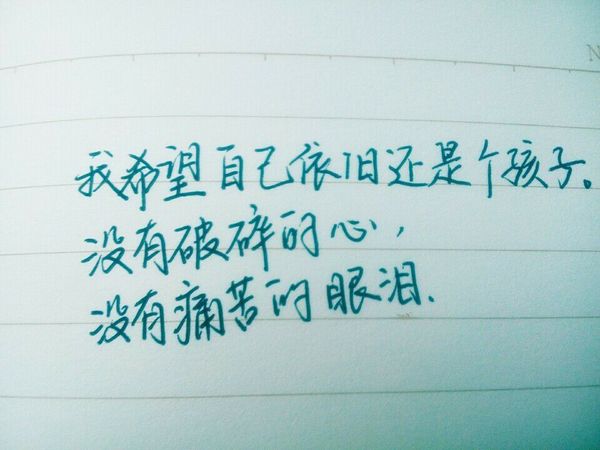 我希望自己依旧还是个孩子。
没有破碎的心,
没有痛苦的眼泪.
N